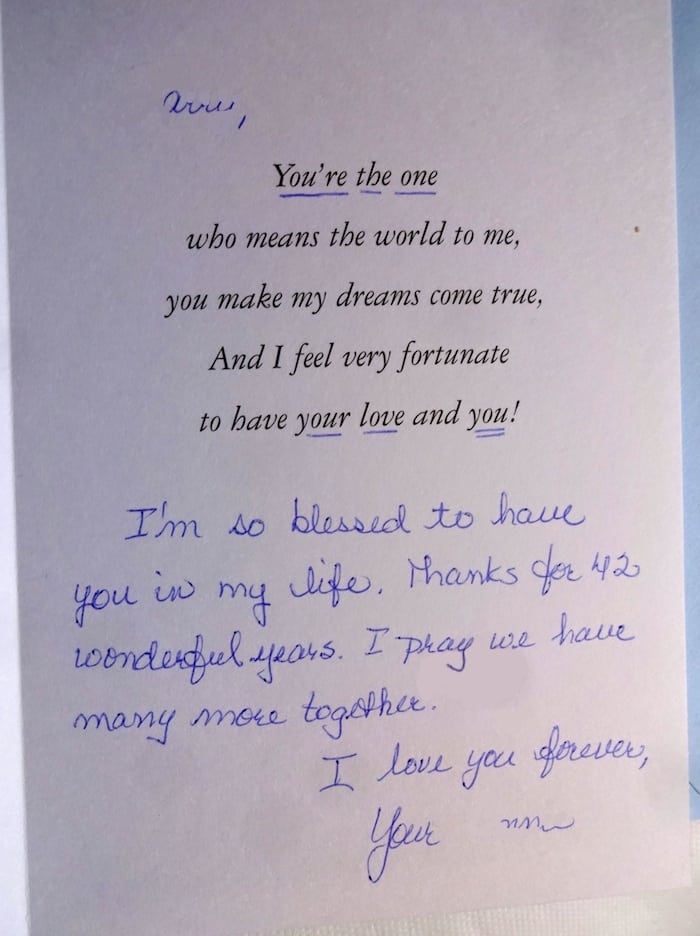 You're the one
who means the world to me,
you make my dreams come true,
And I feel very fortunate
to have your love and you!
I'm so blessed to have
you in my life. Thanks for 42
wonderful years. I pray we have
many more together.
I love you forever,
Your